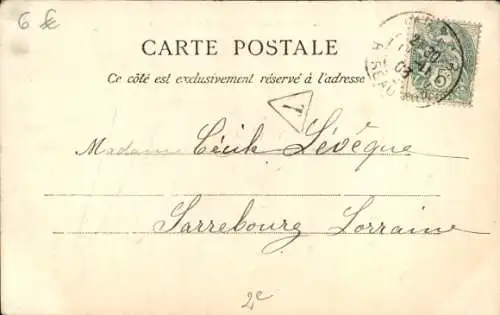 6 fc
CARTE POSTALE
Ce côté est exclusivement réservé à l'adresse
T
Madame Cécile Lévêque
Sarrebourg Lorraine
2e